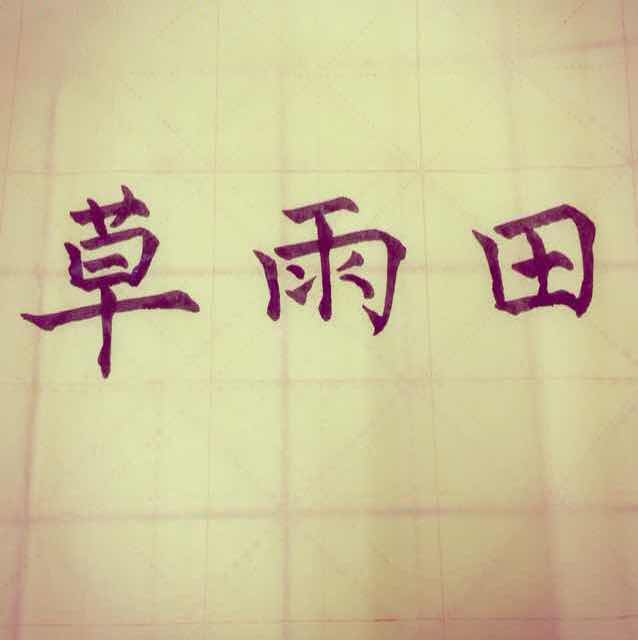 草雨田